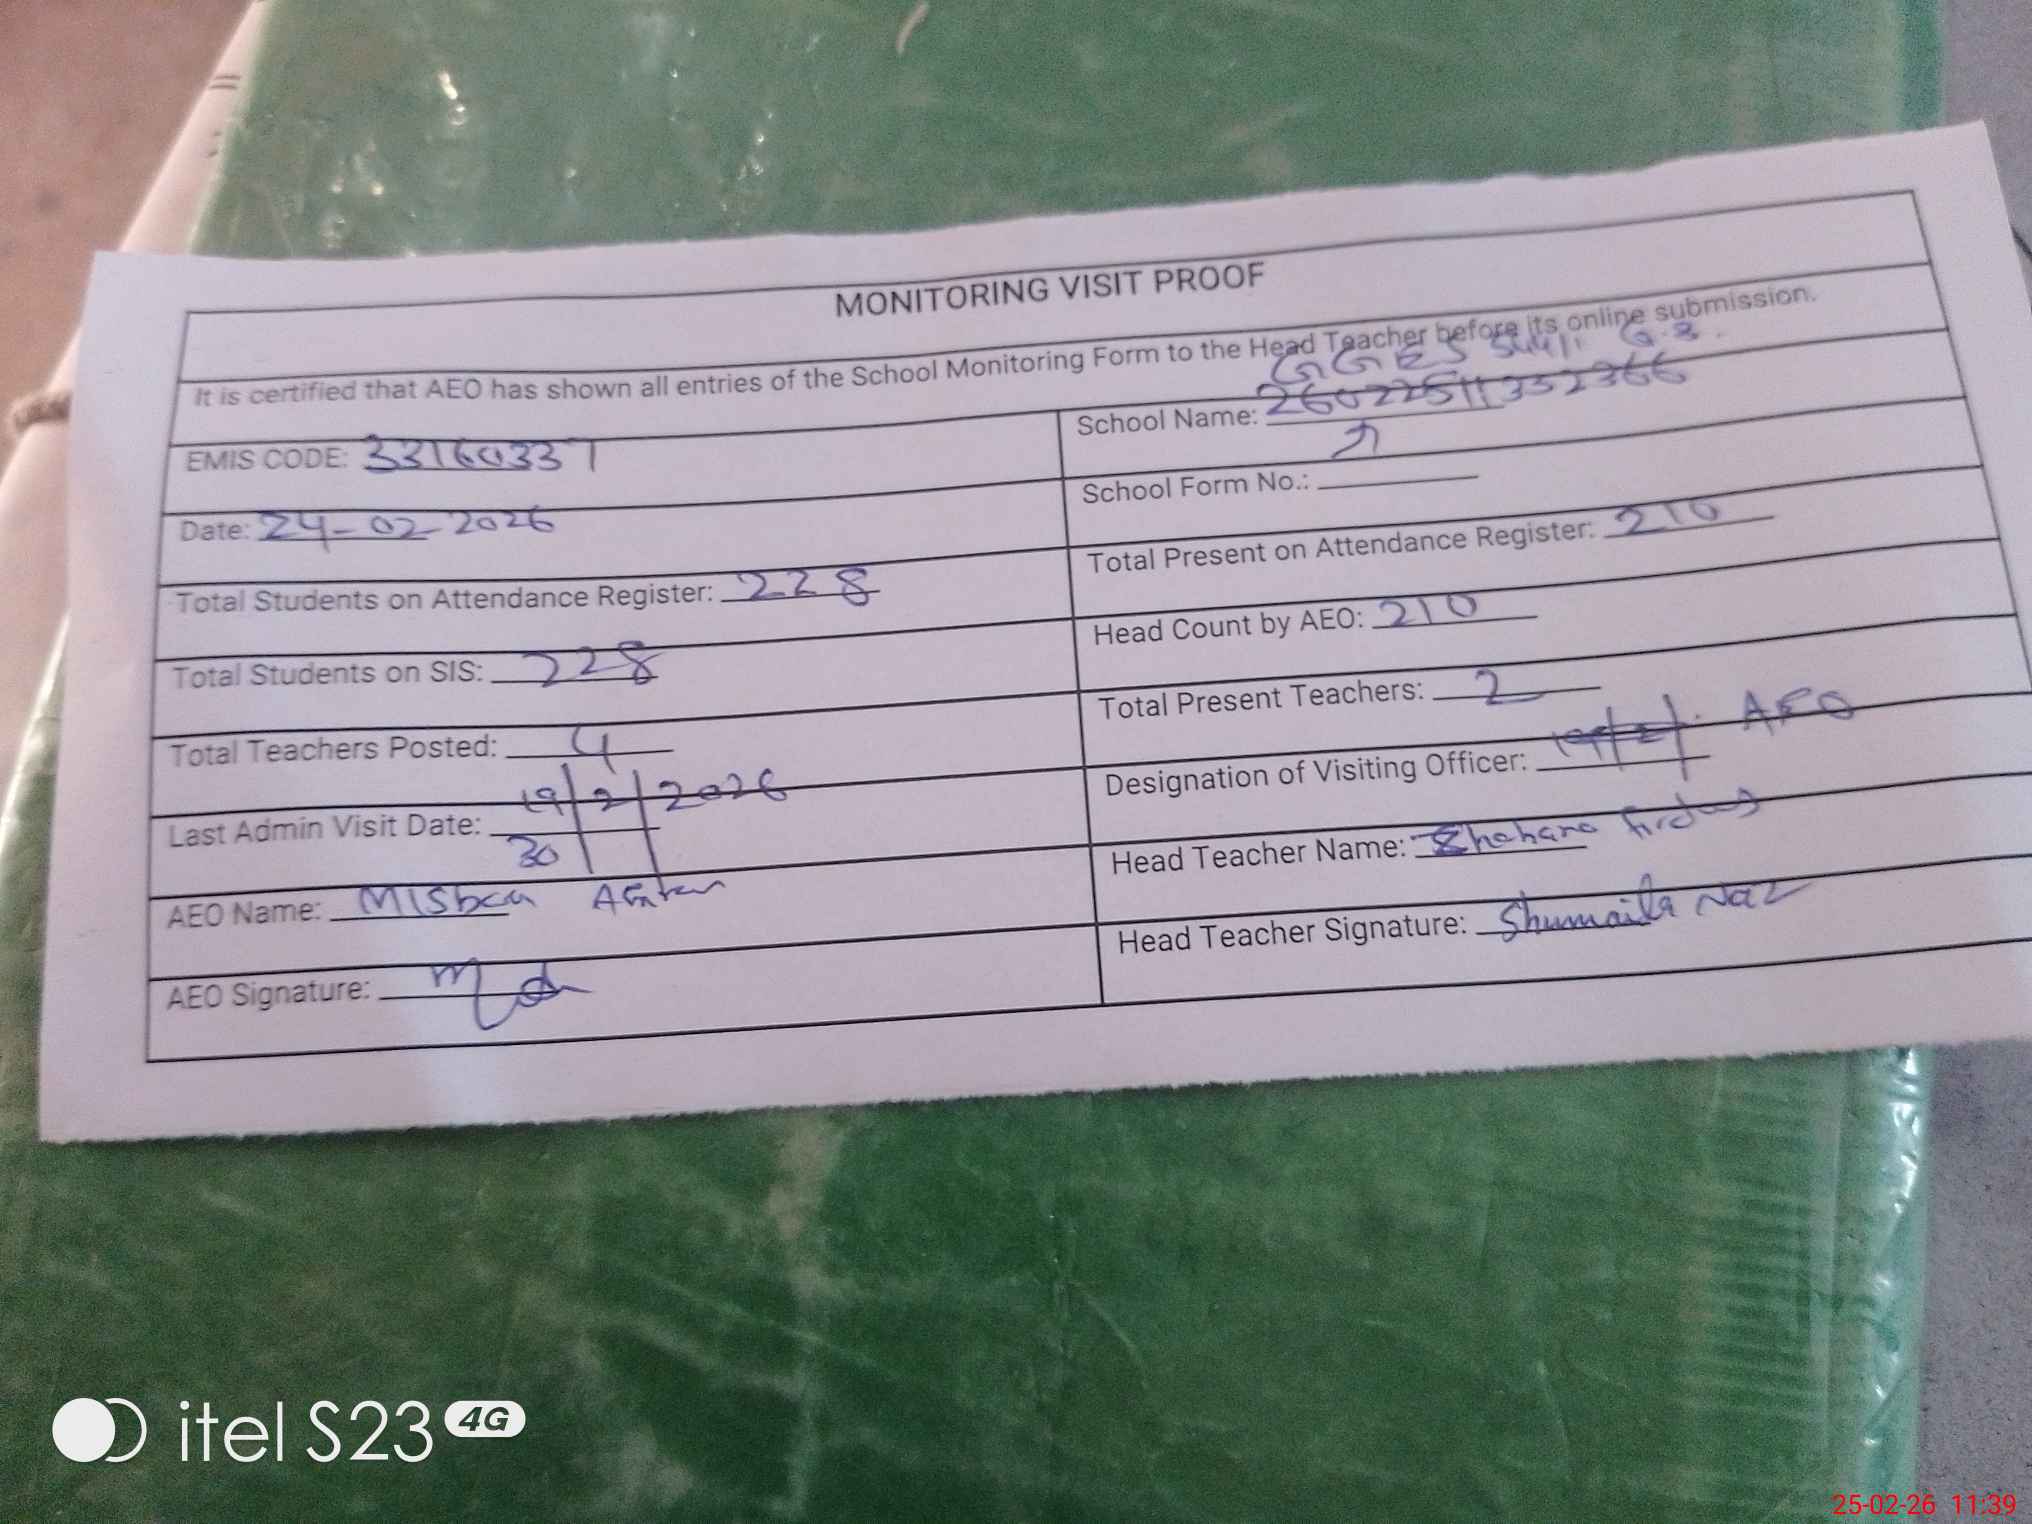 MONITORING VISIT PROOF
It is certified that AEO has shown all entries of the School Monitoring Form to the Head Teacher before its online submission.
EMIS CODE: 33160337
School Name: GGES G.B.
26022511352366
Date: 24-02-2026
School Form No.:
Total Students on Attendance Register: 228
Total Present on Attendance Register: 210
Total Students on SIS: 228
Head Count by AEO: 210
Total Teachers Posted: 4
Total Present Teachers: 2
Last Admin Visit Date: 19/2/2026
30
Designation of Visiting Officer: AEO
AEO Name: Misbah
Head Teacher Name: Shahana Firdous
AEO Signature:
Head Teacher Signature: Shumaila Naz
itel S23 4G
25-02-26 11:39